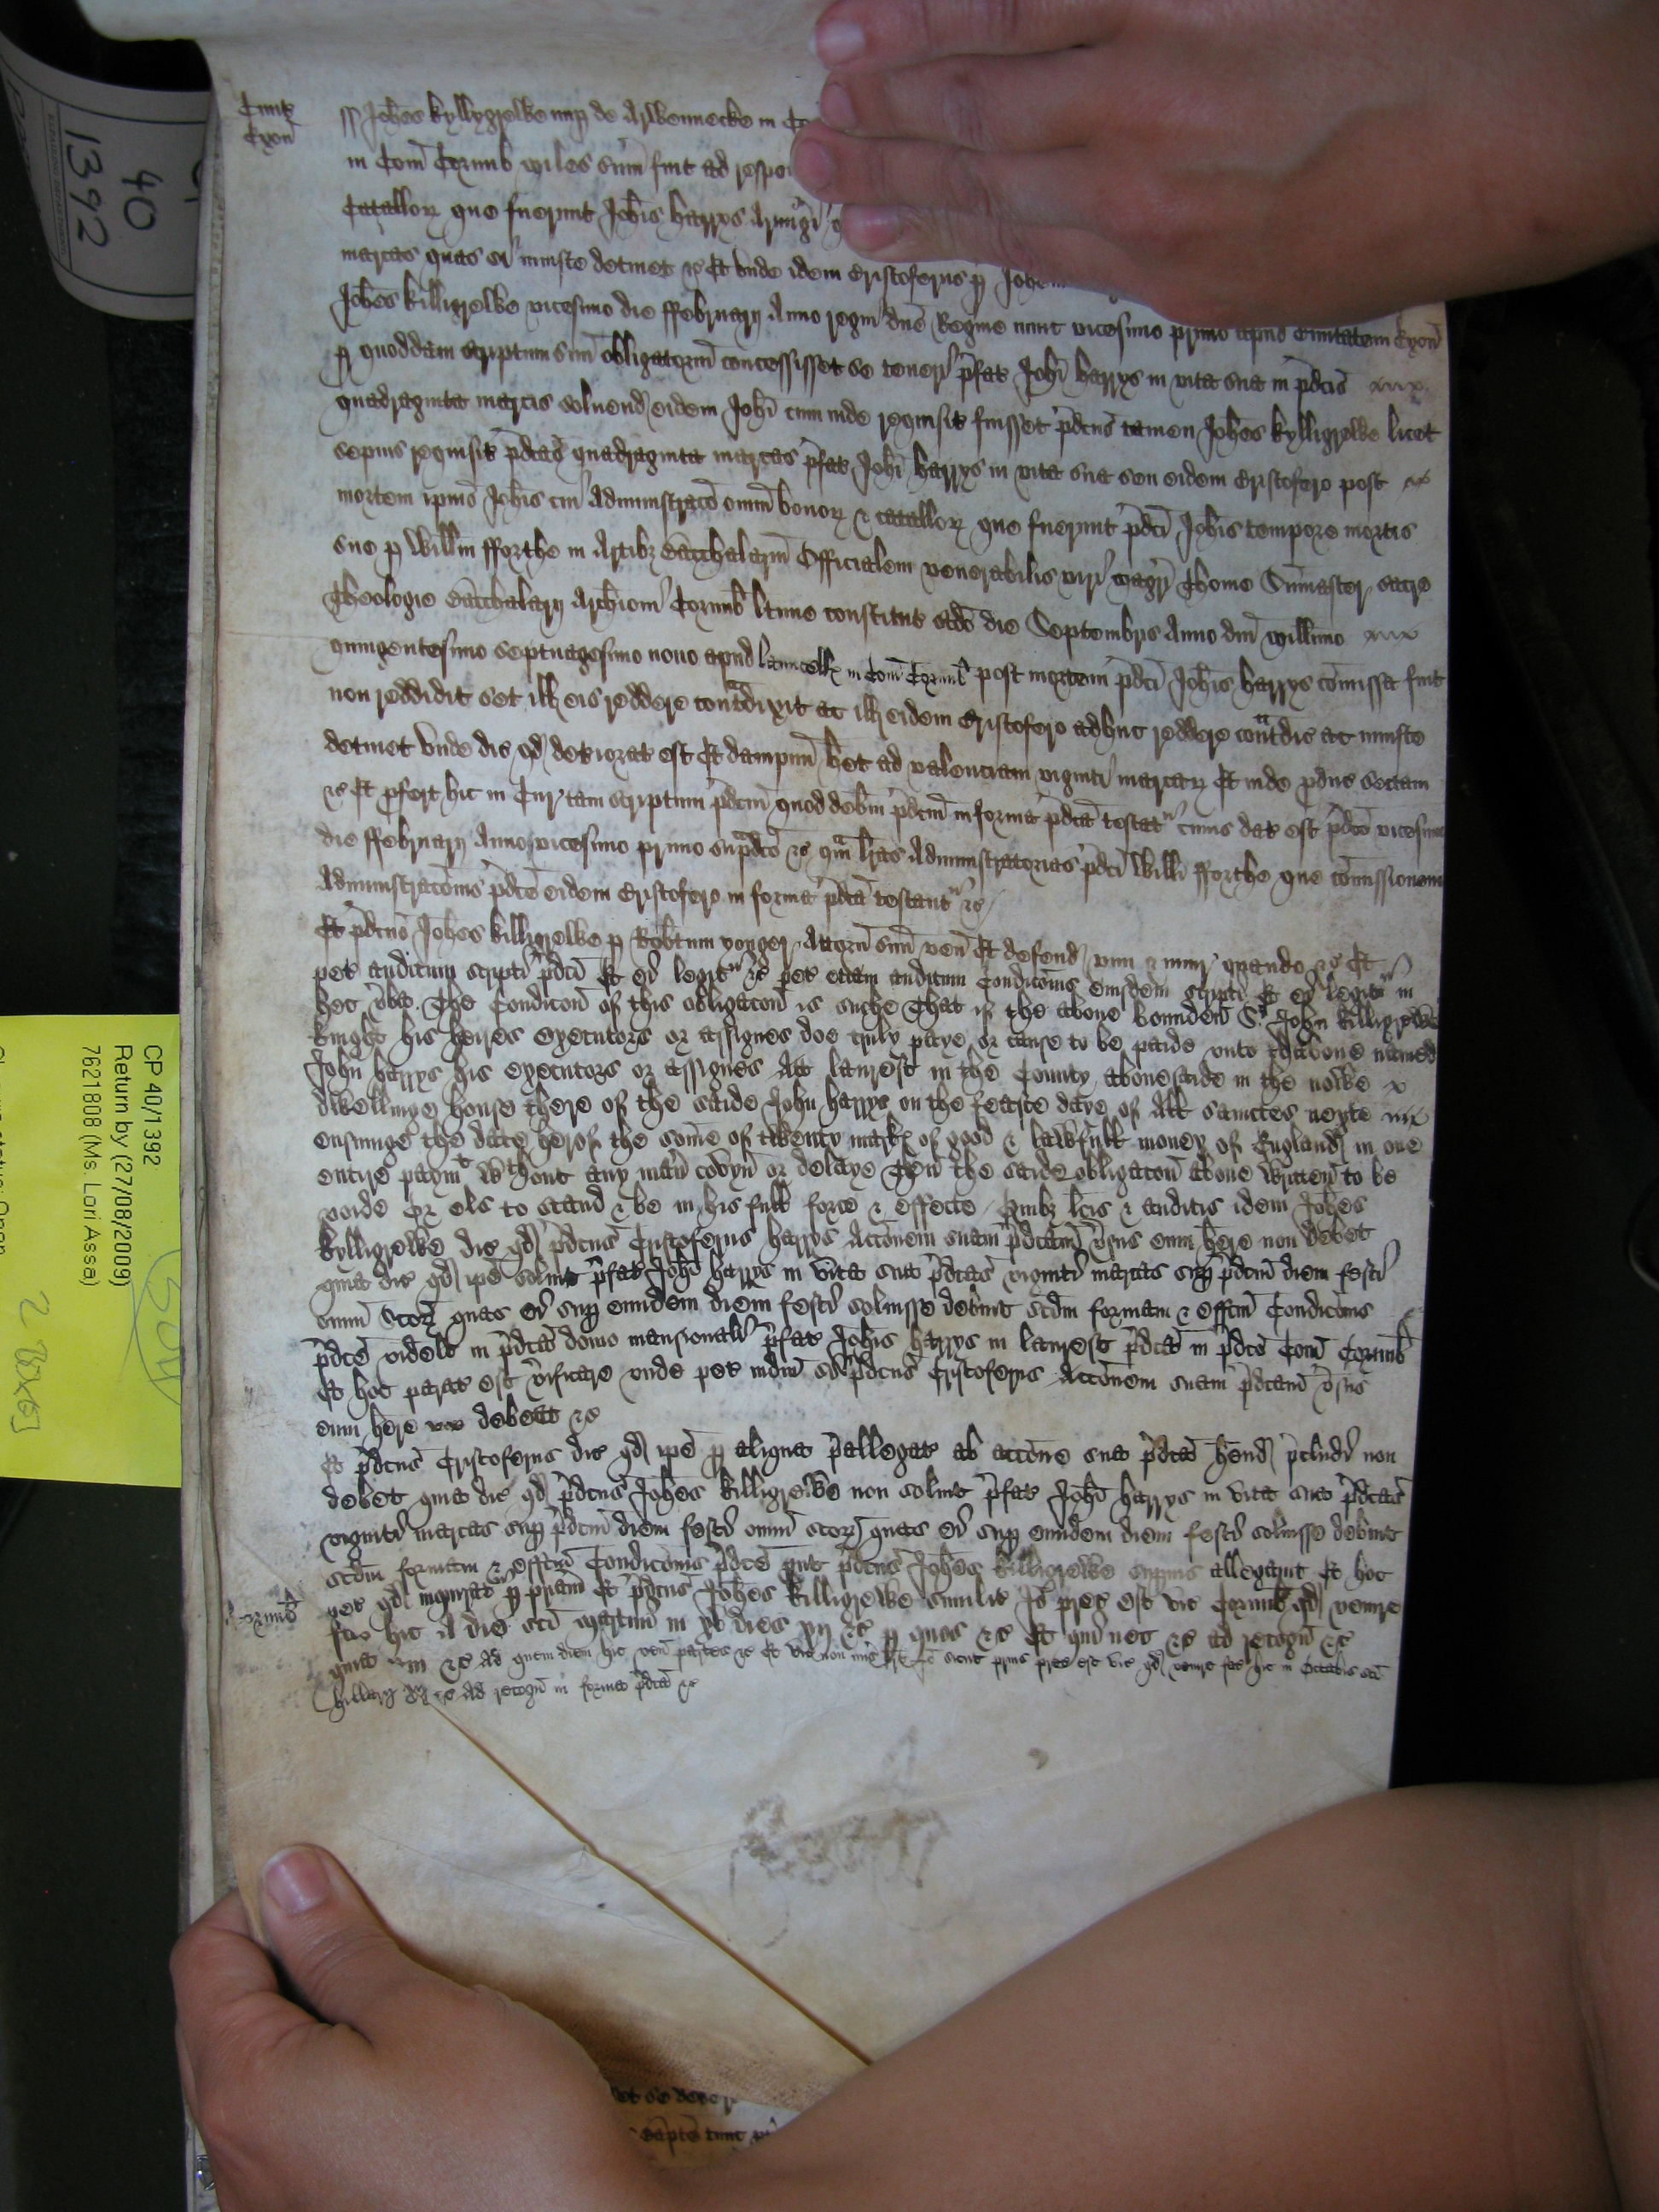 Civit
Exon
Joħes kyllygrewe nup de Arwennecke in
in Com̄ Cornub miles sum̄ fuit ad respo
Catallor que fuerunt Joħis harrys Armigi
marcas quas ei iniuste detinet &c Et unde idem Cristoferus p Joħem
Joħes killigrewe vicesimo die ffebruarij Anno regni dn̄e Regine nunc vicesimo primo apud Civitatem Exon
p quoddam scriptum suū obligatoriū concessisset se teneri p̄fat Joħi harrys in vita sua in p̄dcis
quadraginta marcis solvend eidem Joħi cum inde requisit fuisset p̄dcus tamen Joħes kylligrewe licet
sepius requisit p̄dcas quadraginta marcas p̄fat Joħi harrys in vita sua seu eidem Cristofero post
mortem ipius Joħis cui Administraco om̄i bonor & catallor que fuerunt p̄dci Joħis tempore mortis
sue p Willm̄ fforthe in Artibz Bacchalariū Officialem venerabilis viri magri Thome Sum̄aster sacre
Theologie Bacchalarij Archiom Cornub ltime constitut scdo die Septembris Anno dni millimo
quingentesimo septuagesimo nono apud launcells in Com̄ Cornub post mortem p̄dci Joħis harrys com̄issa fuit
non reddidit set ill eis reddere contradixit ac ill eidem Cristofero adhuc reddere contradic ac iniuste
detinet unde dic qd deteriorat est Et dampnū het ad valenciam viginti marcar Et inde pduc sectam
&c Et profert hic in Cur tam scriptum p̄dcm quod debm p̄dcm in forma p̄dca testat cuius dat est p̄dco vicesimo
die ffebruarij Anno vicesimo primo sup̄dco &c qm̄ lras Administratorias p̄dci Willi fforthe que com̄issionem
Administracois p̄dce eidem Cristofero in forma p̄dca testant &c
Et p̄dcus Joħes killigrewe p Robtum yonger Attorn suū ven Et defend vim & iniur quando &c Et
pet auditum scripti p̄dci Et ei legit &c pet eciam auditum Condicois eiusdem scripti Et ei legit in
hec vba The Condicon of this obligacon is suche That if the above bounden Sr John killigrewe
knight his heires executors or assignes doe truly paye or cause to be paide unto thabove named
John harrys his executors or assignes Att lanrest in the County abovesaide in the nowe
dwellinge house there of the saide John harrys on the feaste daye of All sainctes nexte
ensuinge the date herof the some of twenty marks of good & lawfull money of England in one
entire paymt wthout any man covyn or delaye Then the saide obligacon above written to be
voide Or els to stand & be in his full force & effecte Quibz lcis & auditis idem Joħes
kylligrewe dic qd p̄dcus Cristoferus harrys Accionem suam p̄dcam vsus eum here non debet
quia dic qd ipe solvit p̄fat Joħi harrys in vita sua p̄dcas viginti marcas sup p̄dcm diem festi
omniū Scor quas ei sup eundem diem festi solvisse debuit scdm formam & effcm Condicois
p̄dce videlt in p̄dca domo mansionali p̄fat Joħis harrys in lanrest p̄dca in p̄dco Com̄ Cornub
Et hoc parat est vificare unde pet iudm̄ si p̄dcus Cristoferus Accionem suam p̄dcam vsus
eum here debeat &c
Et p̄dcus Cristoferus dic qd ipe p aliqua p̄allegat ab accione sua p̄dca hend p̄cludi non
debet quia dic qd p̄dcus Joħes killigrewe non solvit p̄fat Joħi harrys in vita sua p̄dcas
viginti marcas sup p̄dcm diem festi omniū scor quas ei sup eundem diem festi solvisse debuit
scdm formam & effcm Condicois p̄dce put p̄dcus Joħes killigrewe supius allegavit Et hoc
pet qd inquirat p priam Et p̄dcus Joħes killigrewe similit Jo prec est vic Cornub qd venire
Cornub
fac hic a die sci Martini in xv dies xij &c p quos &c Et qui nec &c ad recogn &c
quia tam &c Ad quem diem hic ven partes &c Et vic non mis bre Jo sicut prius prec est vic qd venire fac hic in Octabis sci
hillarij xij &c Ad recogn in forma p̄dca &c
40
1392
CP 40/1392
Return by (27/08/2009)
7621808 (Ms. Lori Assea)